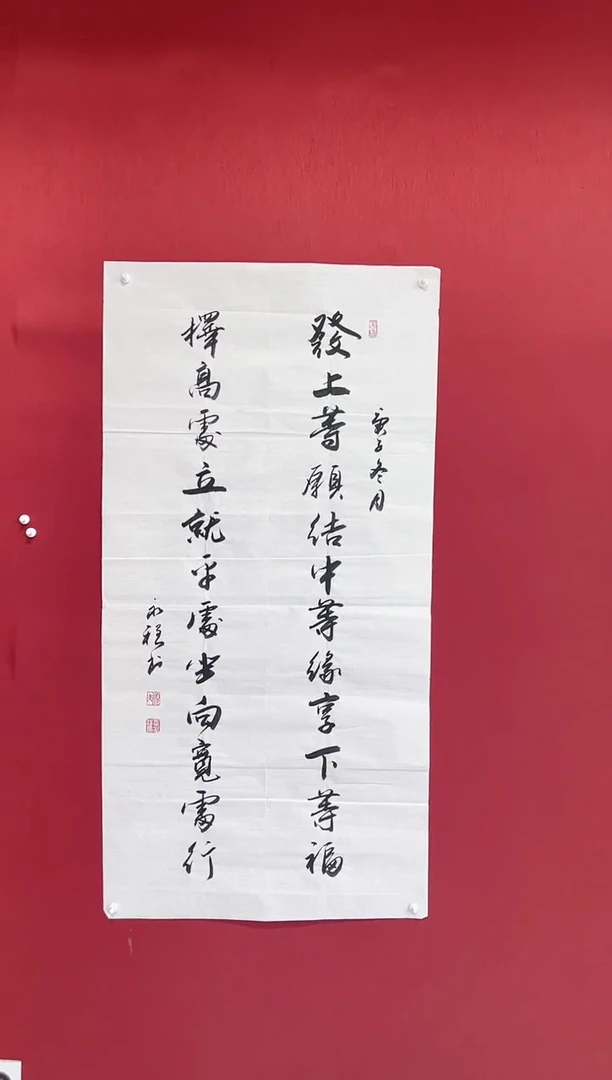 發上等願結中等緣享下等福
庚子冬月
擇高處立就平處坐向寬處行
永程書